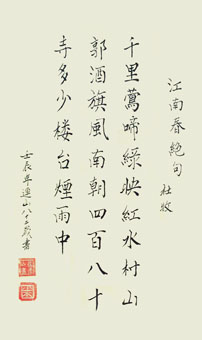 江南春絕句
杜牧
千里鶯啼綠映紅水村山
郭酒旗風南朝四百八十
寺多少楼台煙雨中
壬辰年連山八十二歲書